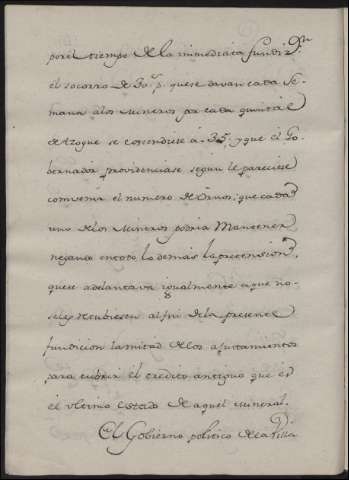 por el tiempo de la inmediata fundiz.on
el socorro de 30 p. que se davan cada Se-
mana a los Mineros por cada quintal
de Azogue se estendiese à 35, y que el Go-
bernador providenciase segun le pareciese
combenir el numero de Ornos, que cada
uno de los Mineros podria Mantener
negando en todo lo demas la pretension
que se adelantava igualmente a que no
seles retubiesen al fin de la presente
fundicion la mitad de los ajustamientos
para cubrir el credito antiguo que es
el vltimo estado de aquel Mineral.
El Gobierno politico de la Villa